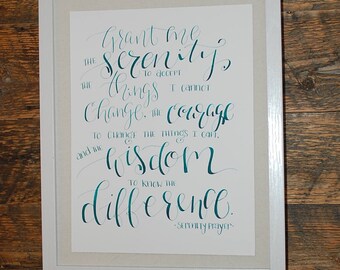 Grant me
the serenity,
to accept
the things I cannot
change. the courage
to change the things I can,
&
and the wisdom
to know the
difference.
-Serenity Prayer-